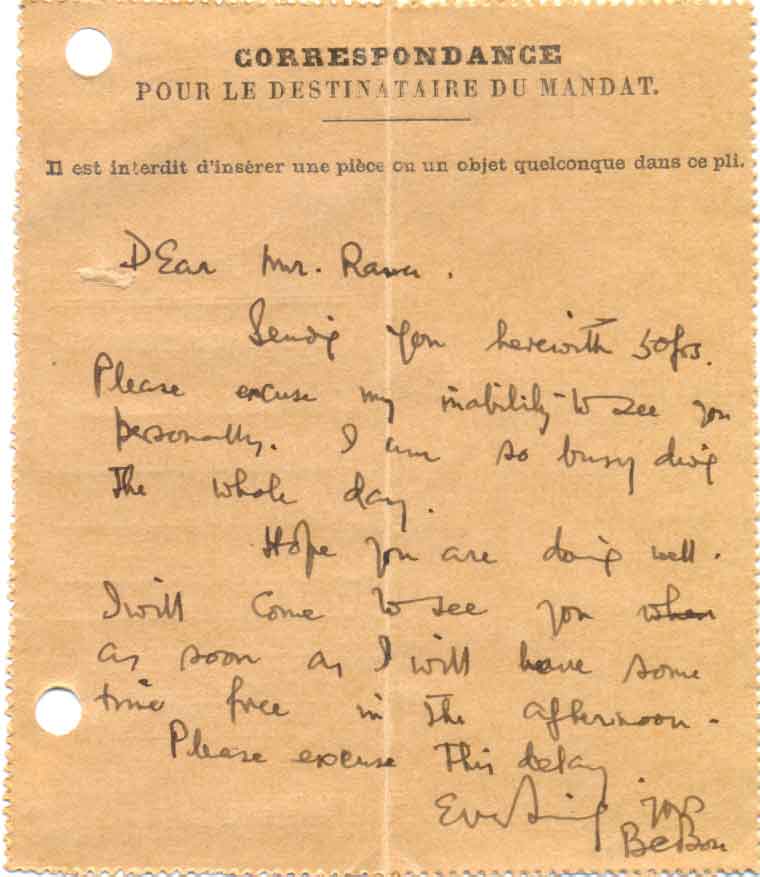 CORRESPONDANCE
POUR LE DESTINATAIRE DU MANDAT.
Il est interdit d'insérer une pièce ou un objet quelconque dans ce pli.
Dear Mr. Rana.
Sending you herewith 50 frs.
Please excuse my inability to see you
personally. I am so busy during
the whole day.
Hope you are doing well.
I will come to see you when
as soon as I will have some
time free in the afternoon.
Please excuse this delay
Ever